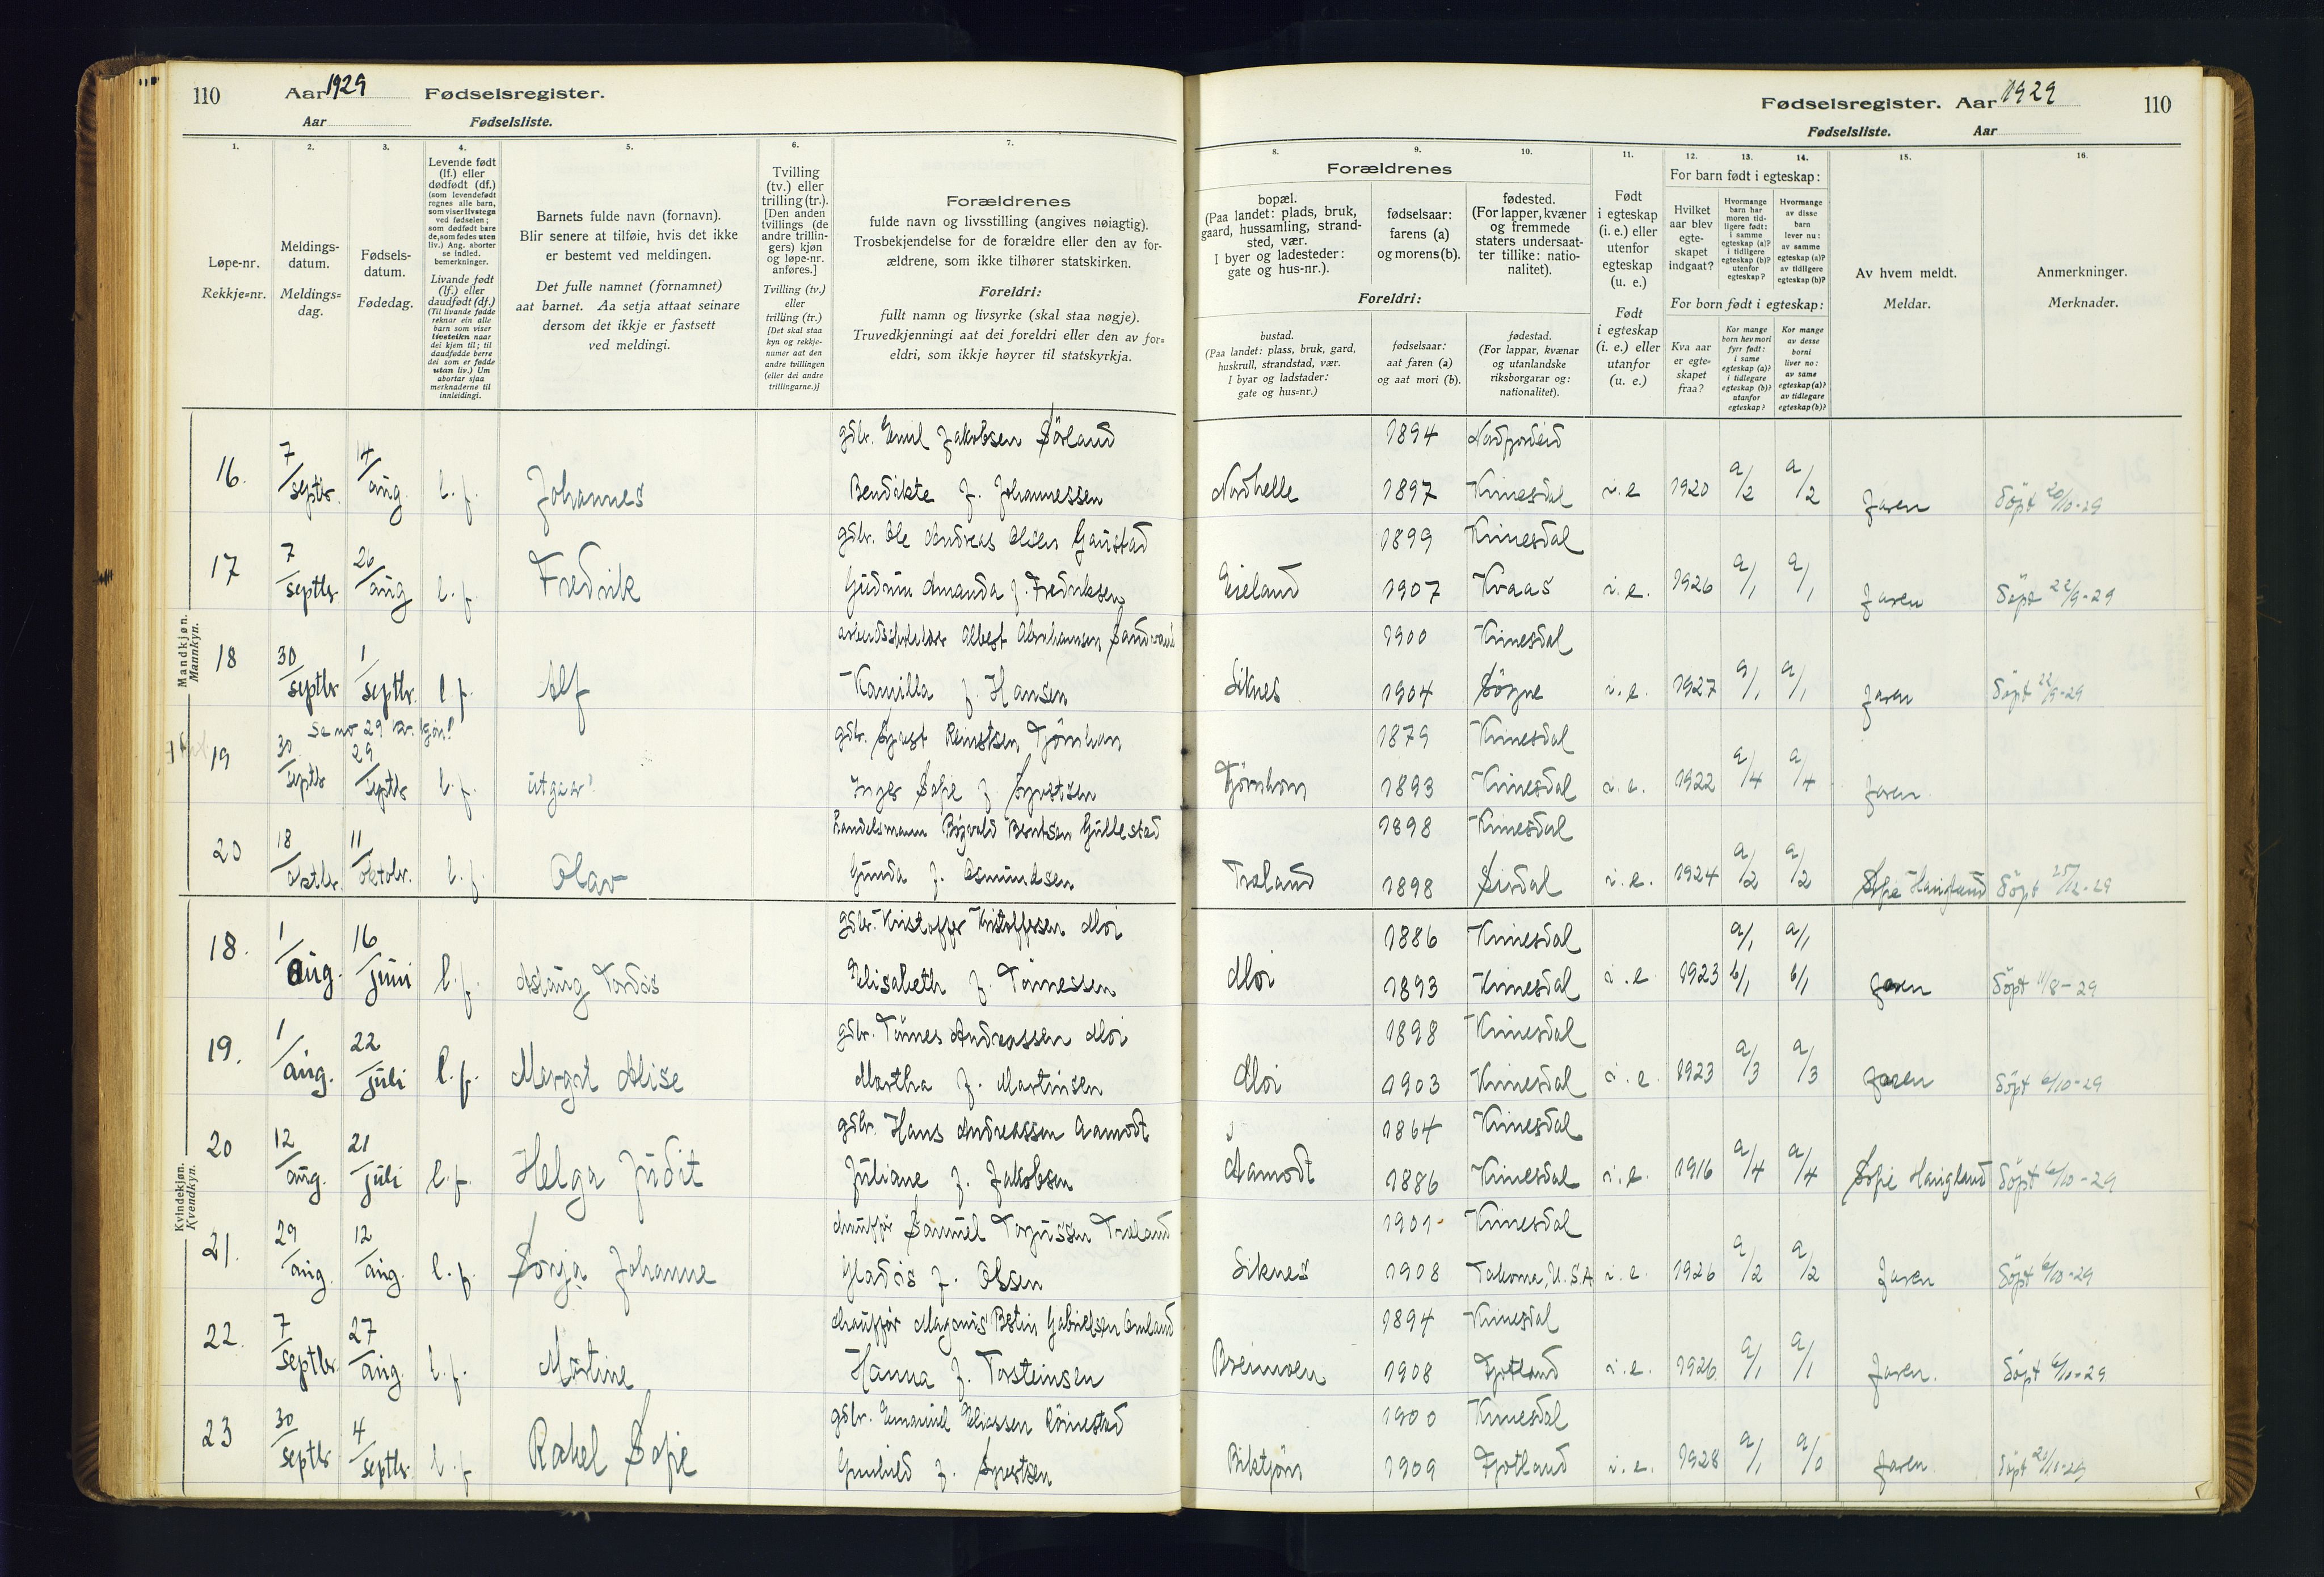 110 Aar 1929 Fødselsregister.
Aar Fødselsliste.
Fødselsregister. Aar 1929 110
Fødselsliste. Aar
1. 2. 3. 4. 5. 6. 7.
Løpe-nr.
Rekkje-nr.
Meldings-
datum.
Meldings-
dag.
Fødsels-
datum.
Fødedag.
Levende født
(lf.) eller
dødfødt (df.)
(som levendefødt
regnes alle barn,
som viser livstegn
ved fødselen;
som dødfødt bare
de, som fødes uten
liv.) Ang. aborter
se indled.
bemerkninger.
Livande født
(lf.) eller
daudfødt (df.)
(Til livande fødde
reknar ein alle
barn som viser
livsteikn naar
dei kjem til; til
daudfødde berre
dei som er fødde
utan liv.) Um
abortar sjaa
merknaderne til
innleidingi.
Barnets fulde navn (fornavn).
Blir senere at tilføie, hvis det ikke
er bestemt ved meldingen.
Det fulle namnet (fornamnet)
aat barnet. Aa setja attaat seinare
dersom det ikkje er fastsett
ved meldingi.
Tvilling
(tv.) eller
trilling (tr.).
[Den anden
tvillings (de
andre trillin-
gers) kjøn
og løpe-nr.
anføres.]
Tvilling (tv.)
eller
trilling (tr.)
[Det skal staa
kyn og rekkje-
numer aat den
andre tvillingen
(eller dei andre
trillingarne.)]
Forældrenes
fulde navn og livsstilling (angives nøiagtig).
Trosbekjendelse for de forældre eller den av for-
ældrene, som ikke tilhører statskirken.
Foreldri:
fullt namn og livsyrke (skal staa nøgje).
Truvedkjenningi aat dei foreldri eller den av for-
eldri, som ikkje høyrer til statskyrkja.
8. 9. 10. 11. 12. 13. 14. 15. 16.
Forældrenes
bopæl.
(Paa landet: plads, bruk,
gaard, hussamling, strand-
sted, vær.
I byer og ladesteder:
gate og hus-nr.).
fødselsaar:
farens (a)
og morens (b).
fødested.
(For lapper, kvæner
og fremmede
staters undersaat-
ter tillike: natio-
nalitet).
Foreldri:
bustad.
(Paa landet: plass, bruk, gard,
huskrull, strandstad, vær.
I byar og ladstader:
gate og hus-nr.)
fødselsaar:
aat faren (a)
og aat mori (b).
fødestad.
(For lappar, kvænar
og utanlandske
riksborgarar og:
nationalitet).
Født
i egteskap
(i. e.) eller
utenfor
egteskap
(u. e.)
Født
i egteskap
(i. e.) eller
utanfor
(u. e.)
For barn født i egteskap:
Hvilket
aar blev
egte-
skapet
indgaat?
Hvormange
barn har
moren tid-
ligere født:
i samme
egteskap (a)?
i tidligere
egteskap (b)?
utenfor
egteskap?
Hvormange
av disse
barn
lever nu:
av samme
egteskap (a)?
av tidligere
egteskap (b)?
For born født i egteskap:
Kva aar
er egte-
skapet
fraa?
Kor mange
born hev mori
fyrr født:
i same
egteskap (a)?
i tidlegare
egteskap (b)?
utanfor
egteskap?
Kor mange
av desse
borni
liver no:
av same
egteskap (a)?
av tidlegare
egteskap (b)?
Av hvem meldt.
Meldar.
Anmerkninger.
Merknader.
Mandkjøn.
Mannkyn.
gdbr. Emil Jakobsen Sörland 1894 Nordfjordeid
16. 7/septbr. 4/aug. l. f. Johannes Bendikte f. Johannessen Nordhelle 1897 Kvinesdal i. e 1920 a/2 a/2 faren Döpt 20/10-29
gdbr. Ole Andreas Olsen Gaustad 1899 Kvinesdal
17 7/septbr. 26/aug l. f. Fredrik Gudrun Amanda f. Fredriksen Eieland 1907 Kvaas i. e. 1926 a/1 a/1 faren Döpt 22/9-29
Albert Abrahamsen 1900 Kvinesdal
18 30/septbr 1/septbr. l. f. Alf Kamilla f. Hansen Liknes 1904 Søgne i. e. 1927 a/1 a/1 faren Döpt 22/9-29
Se no 29 kv. kjøn!
gdbr. Syvert Reinertsen Tjörnhom 1879 Kvinesdal
19 30/septbr 29/septbr l. f. utgaar! Inger Sofie f. Syvertsen Tjørnhom 1893 Kvinesdal i. e. 1922 a/4 a/4 faren
handelsmann Berntsen Gullestad 1898 Kvinesdal
20 18/oktbr. 11/oktobr. l. f. Olav Gunda f. Asmundsen Træland 1898 Sirdal i. e. 1924 a/2 a/2 Sofie Haugland Döpt 25/12-29
Kvindekjøn.
Kvendkyn.
gdbr. Kristoffer Kristoffersen Moi 1886 Kvinesdal a/1 a/1
18. 1/aug. 16/juni l. f. Aslaug Tordis Elisabeth f. Tønnessen Moi 1893 Kvinesdal i. e 1923 b/1 b/1 faren Döpt 11/8-29
gdbr. Tönnes Andreassen Moi 1898 Kvinesdal
19. 1/aug. 22/juli l. f. Margot Alise Martha f. Martinsen Moi 1903 Kvinesdal i. e. 1923 a/3 a/3 faren Döpt 6/10-29
gdbr. Hans Andreassen Aamodt 1864 Kvinesdal
20 12/aug. 21/juli l. f. Helga Judit Juliane f. Jakobsen Aamodt 1886 Kvinesdal i. e. 1916 a/4 a/4 Sofie Haugland Döpt 6/10-29
chauffør Samuel Torgussen Træland 1901 Kvinesdal
21. 29/aug. 12/aug. l. f. Sonja Johanne Gladis f. Olsen Liknes 1908 Takoma, U.S.A i. e. 1926 a/2 a/2 faren Döpt 6/10-29
chauffør Magnus Gabrielsen Omland 1894 Kvinesdal
22. 7/septbr. 27/aug. l. f. Martine Hanna f. Torsteinsen Breimoen 1908 Fjotland i. e. 1926. a/1 a/1 faren. Döpt 6/10-29
gdbr. Emanuel Eliassen Rönnestad 1900 Kvinesdal
23 30/septbr 4/septbr. l. f Rakel Sofie Gunhild f. Syvertsen Birktjørn 1909 Fjotland i. e. 1928 a/1 a/0 faren Döpt 20/10-29